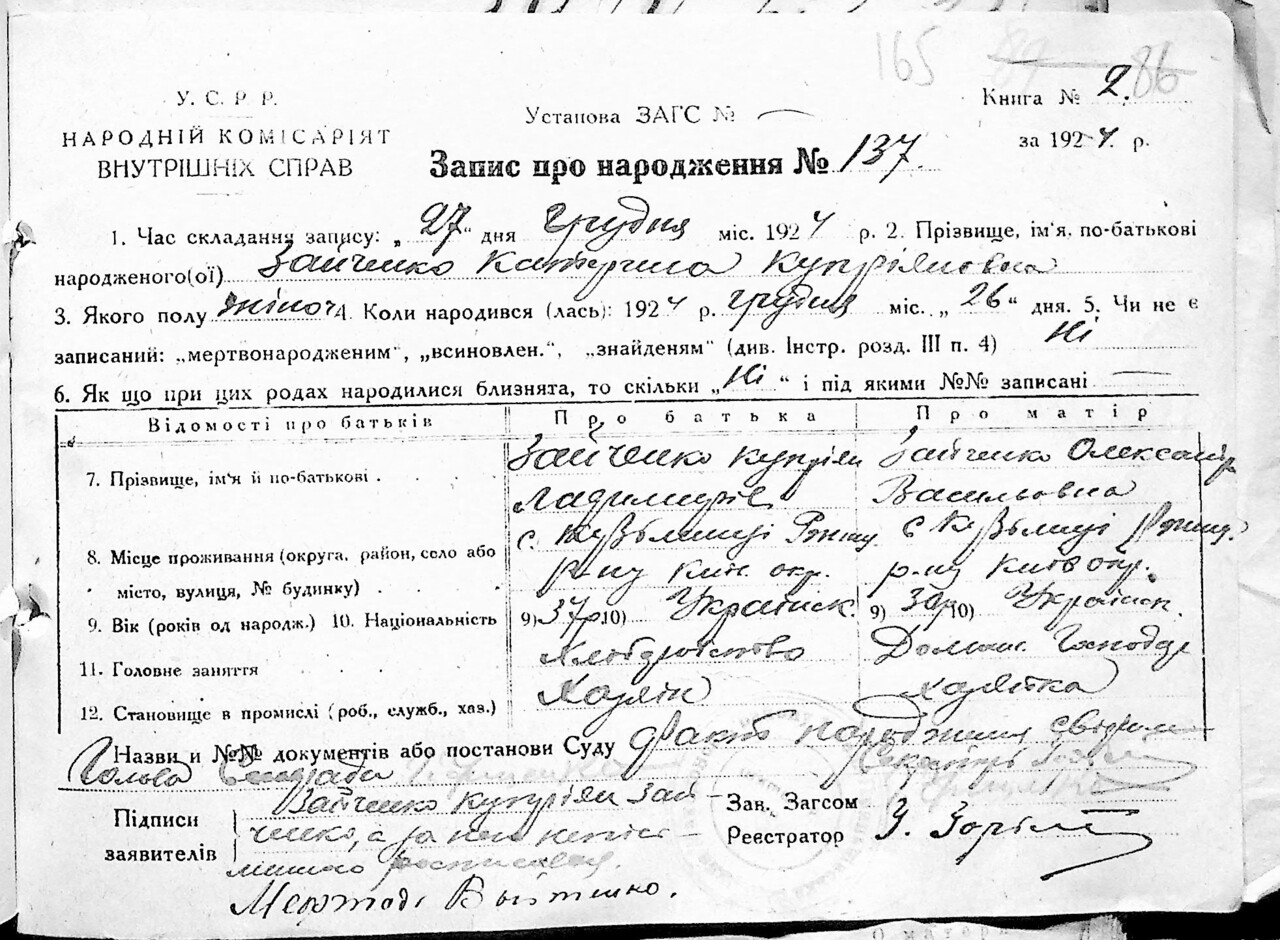 165 89 86
У. С. Р. Р.
НАРОДНІЙ КОМІСАРІЯТ
ВНУТРІШНІХ СПРАВ
Установа ЗАГС № —
Книга № 2.
за 1924 р.
Запис про народження № 137.
1. Час складання запису: „27" дня Грудня міс. 1924 р. 2. Прізвище, ім'я, по-батькові
народженого(ої) Зайченко Катерина Купріяновна
3. Якого полу жіноч 4. Коли народився (лась): 1924 р. Грудня міс. „26" дня. 5. Чи не є
записаний: „мертвонародженим", „всиновлен.", „знайденям" (див. Інстр. розд. III п. 4) Ні
6. Як що при цих родах народилися близнята, то скільки „Ні" і під якими №№ записані —
Відомості про батьків Про батька Про матір
7. Прізвище, ім'я й по-батькові . Зайченко Купріян Зайченко Олександр
Васильовна
8. Місце проживання (округа, район, село або с. Кузьминці Ржищ. с. Кузьминці Ржищ.
місто, вулиця, № будинку) р-ну Київ. окр. р-ну Київ окр.
9. Вік (років од народж.) 10. Національність 9) 37р. 10) Українск. 9) 30р 10) Українск.
11. Головне заняття Хлібороб­ство Домашн. Господар
12. Становище в промислі (роб., служб., хаз.) Хазяїн Хазяїка
Назви и №№ документів або постанови Суду Факт народження
Голова Сельради Секретарь
Підписи
заявителів
Зайченко Купріян Зай-
ченко, а за него
росписався
Зав. Загсом
Реєстратор